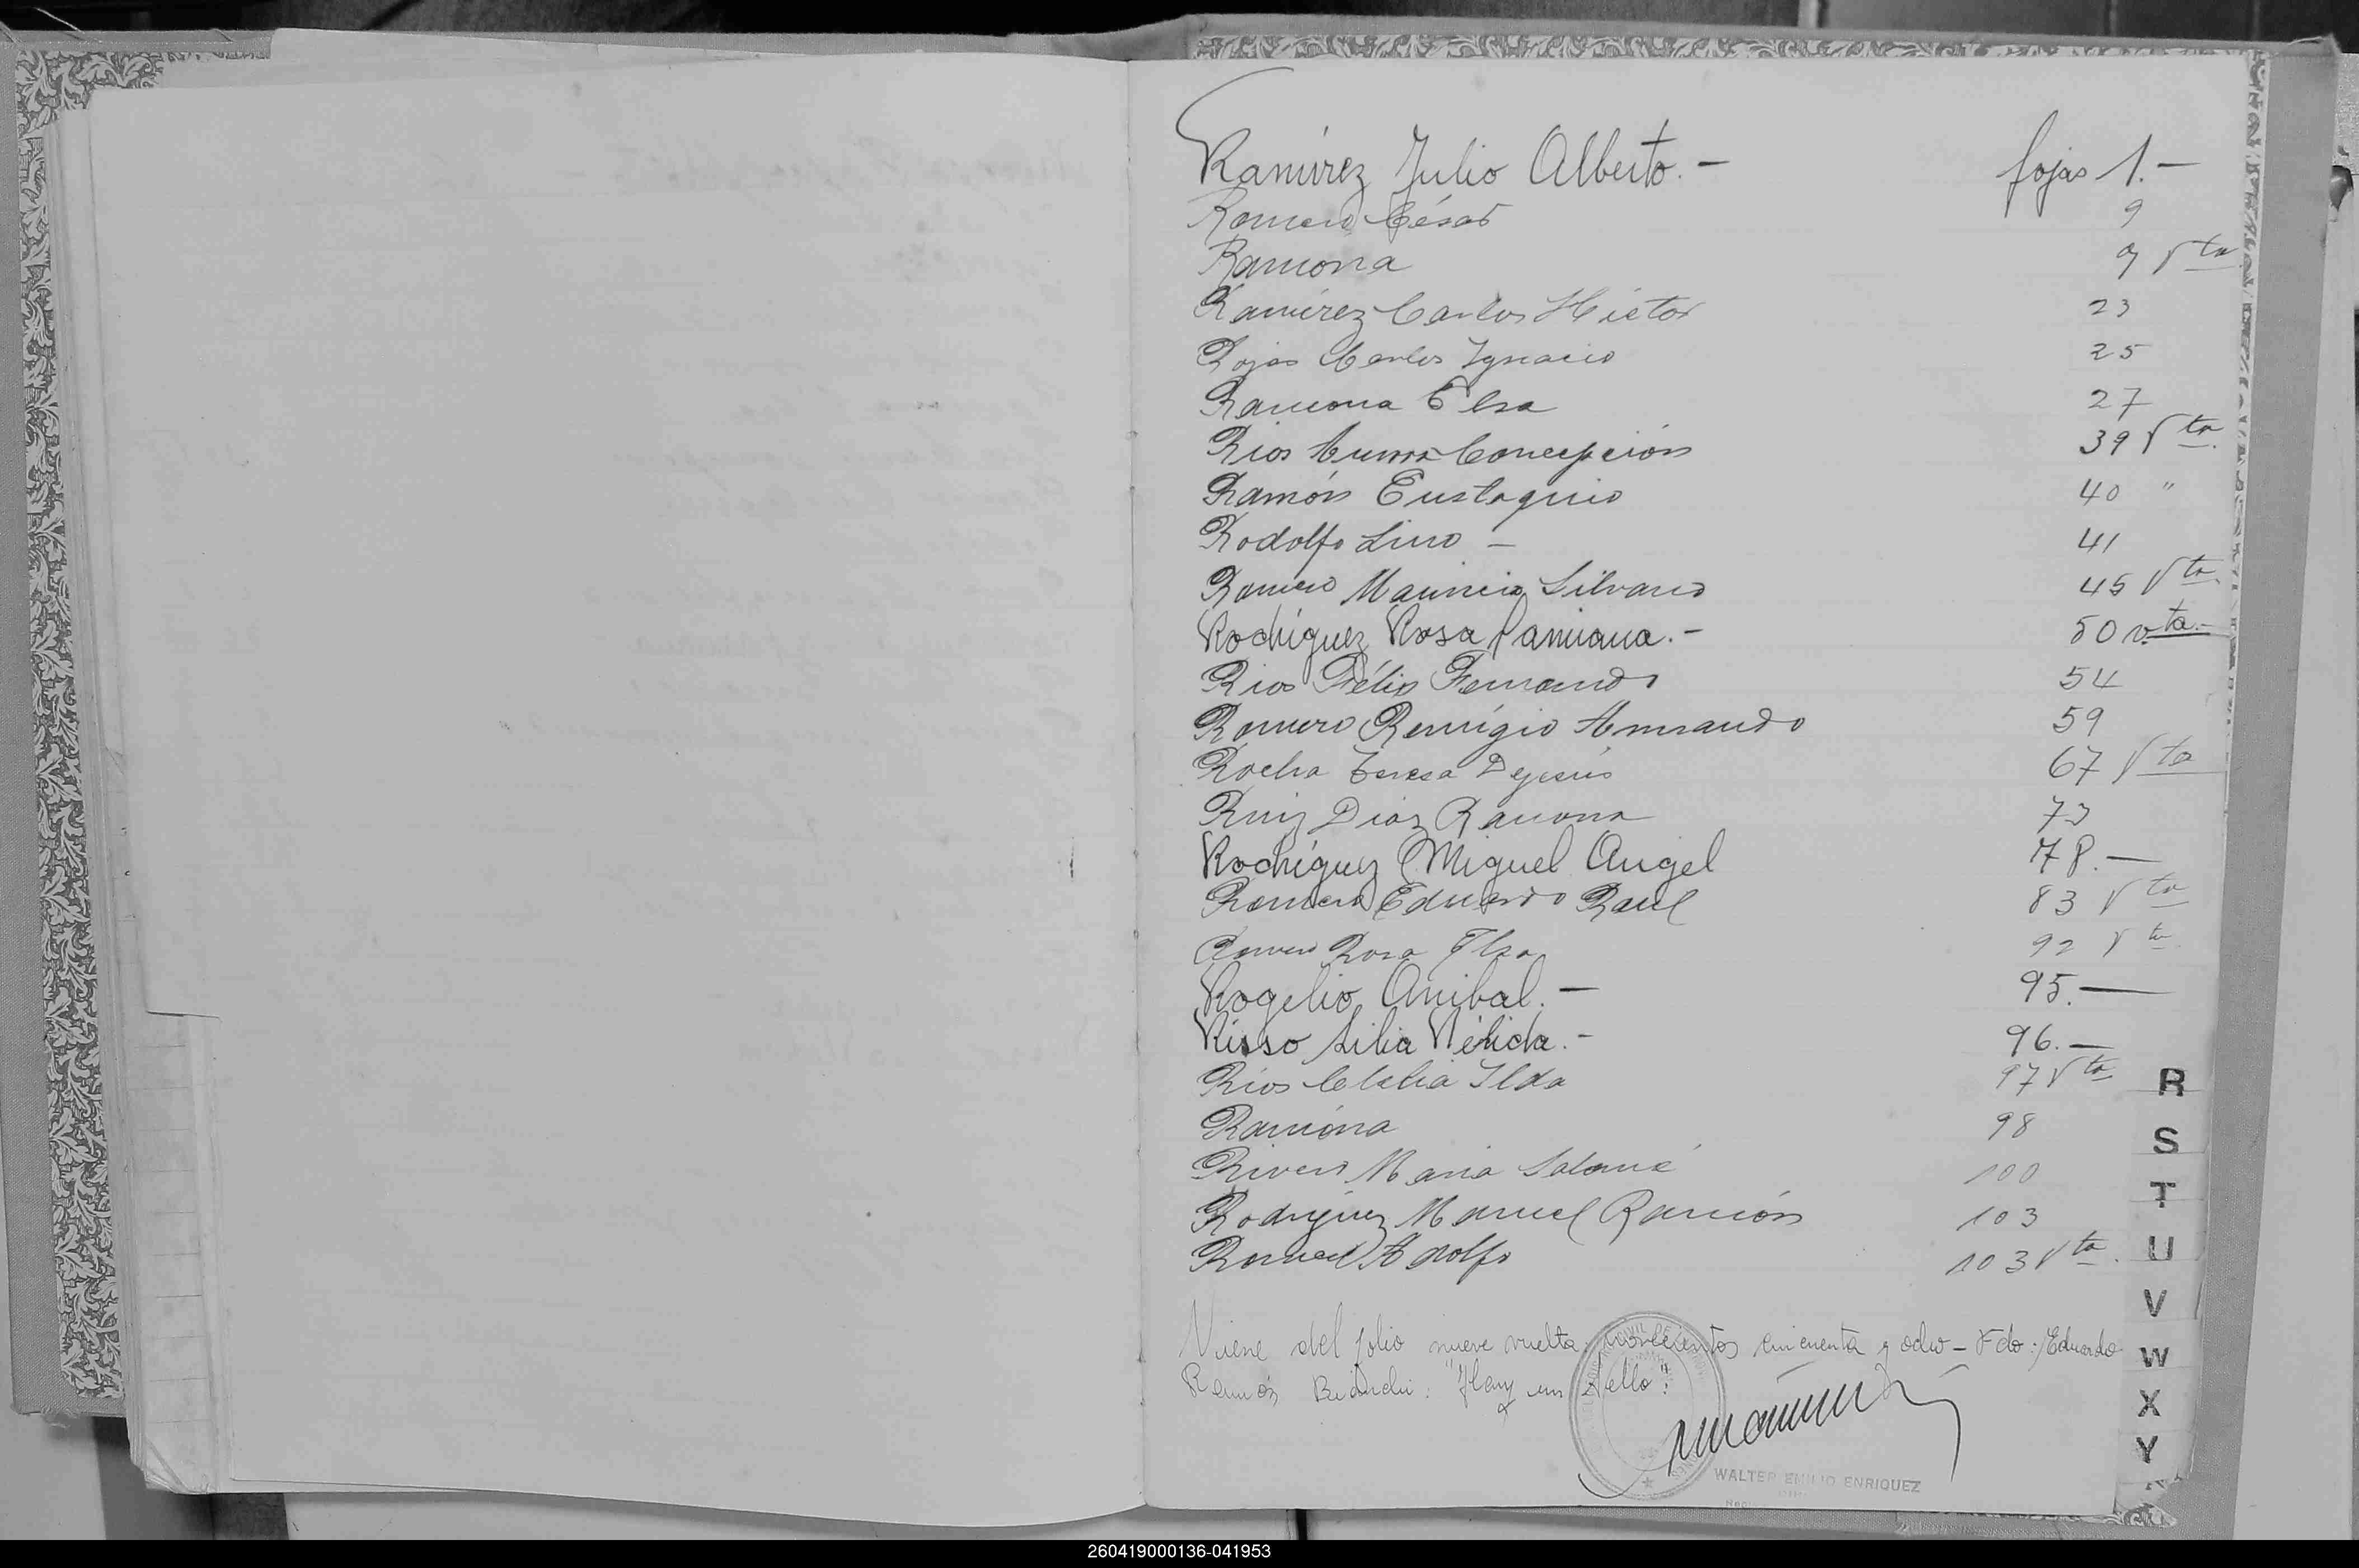 Ramírez Julio Alberto.- fojas 1.-
Romero César 9
Ramona 9 Vta
Ramírez Carlos Héctor 23
Rojas Carlos Ignacio 25
Ramona Elsa 27
Rios Concepción 39 Vta.
Ramón Eustaquio 40 "
Rodolfo Lino - 41
Romero Mauricio Silvano 45 Vta.
Rodríguez Rosa Damiana.- 50 vta.-
Rios Félix Fernando 54
Romero Remigio Armando 59
Rocha Teresa Dejesús 67 Vta
Ruiz Diaz Ramona 73
Rodríguez Miguel Angel 78.-
Romero Eduardo Raul 83 Vta
Romero Rosa Elsa 92 Vta
Rogelio Anibal.- 95.-
Risso Lilia Nélida.- 96.-
Ríos Ilda 97 Vta
Ramona 98
Rivero Maria Salomé 100
Rodríguez Manuel Ramón 103
Adolfo 103 Vta.
Viene del folio nueve vuelta: cincuenta y ocho - Fdo: Eduardo
Ramón Bianchi: "Hay un sello".
WALTER EMILIO ENRIQUEZ
R
S
T
U
V
W
X
Y
260419000136-041953